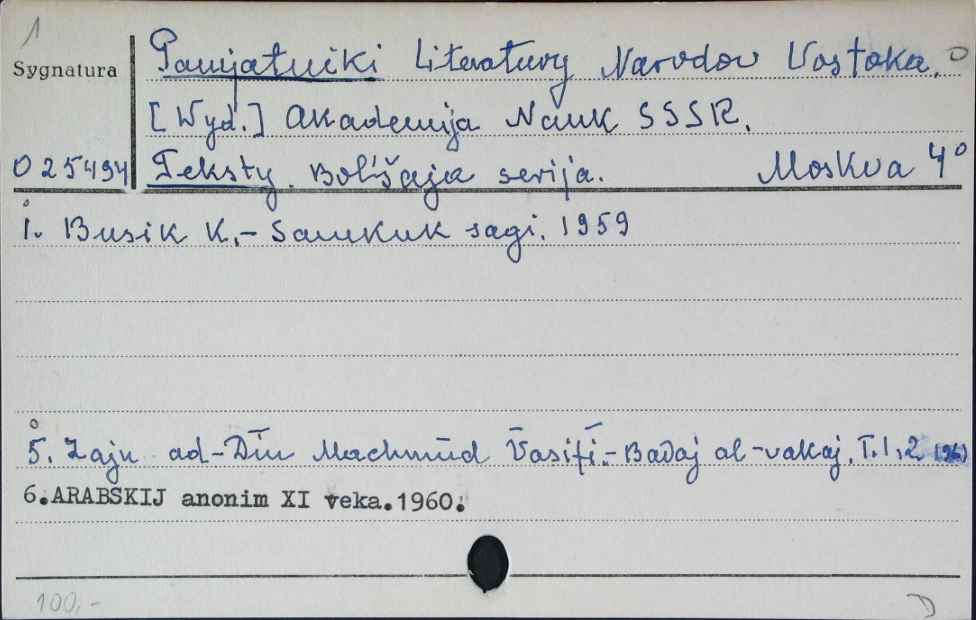 1
Sygnatura Pamjatniki Literatury Narodov Vostoka. 0
[Wyd.] Akademija Nauk SSSR.
025494 Teksty. Bol'šaja serija. Moskva 4°
1. Busik K.- Samkuk sagi. 1959
5. Zajn ad-Dīn Machmūd Vāsifī.- Badaj al-vakaj. T.1,2 (1961)
6.ARABSKIJ anonim XI veka.1960.
100,- D